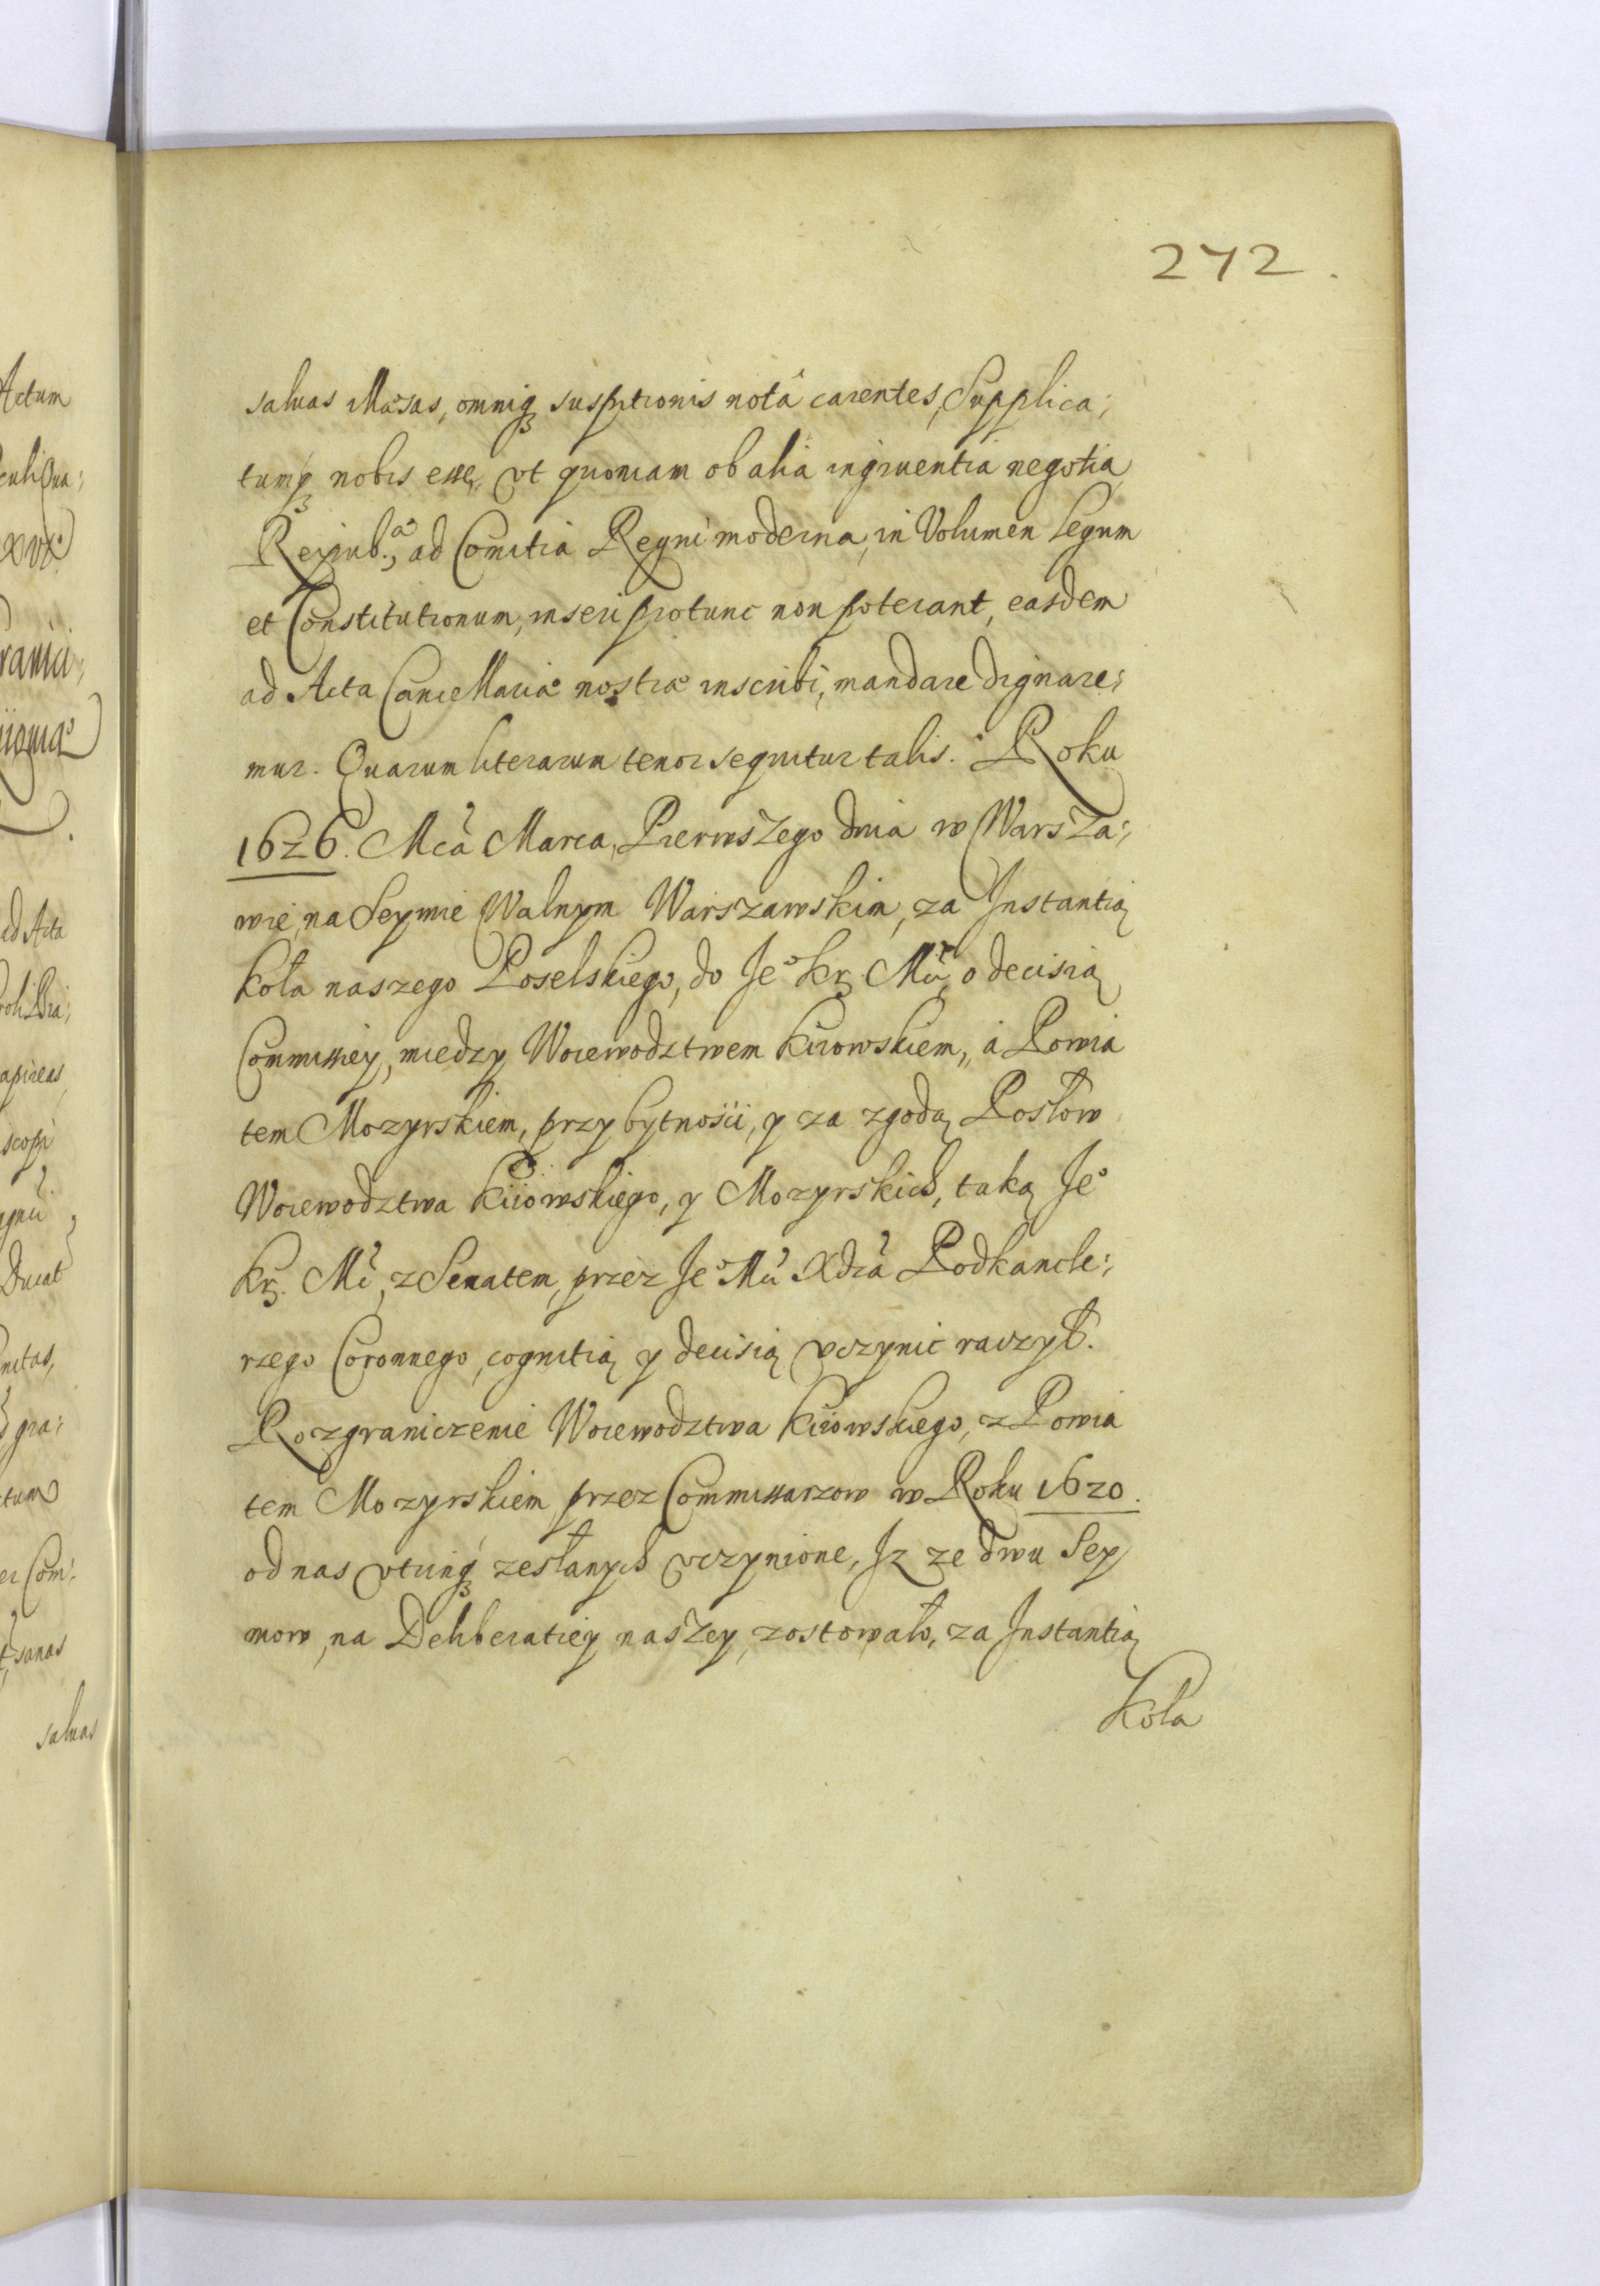 272.
saluas illæsas, omniq; suspitionis notâ carentes, Supplica;
tumq; nobis esse, vt quoniam ob alia ingruentia negotia
Reipub:cæ, ad Comitia Regni moderna, in Volumen Legum
et Constitutionum, inseri protunc non poterant, easdem
ad Acta Cancellariæ nostræ inscribi, mandare dignare;
mur. Quarum literarum tenor sequitur talis. Roku
1626. Mcа Marca, Pierwszego dnia w Warsza;
wie, na Seymie Walnym Warszawskim, za Instantią
koła naszego Poselskiego, do Je° Kr: Mći, o decisią
Commissiey, miedzy Woiewodztwem Kiiowskiem, á Powia
tem Mozyrskiem, przy bytnośći, y za zgodą Posłow
Woiewodztwa Kiiowskiego, y Mozyrskich, taką Je°
Kr: Mć, z Senatem, przez Je° Mći Xdzá Podkancle;
rzego Coronnego, cognitią y decisią vczynic raczył.
Rozgraniczenie Woiewodztwa Kiiowskiego, z Powia
tem Mozyrskiem przez Commissarzow w Roku 1620.
od nas vtrinq; zesłanych vczynione, Jz ze dwu Sey
mow, na Deliberatiey naszey, zostowało, za Instantią
Koła
Actum
ad Acta
scopi
Ducat
saluas